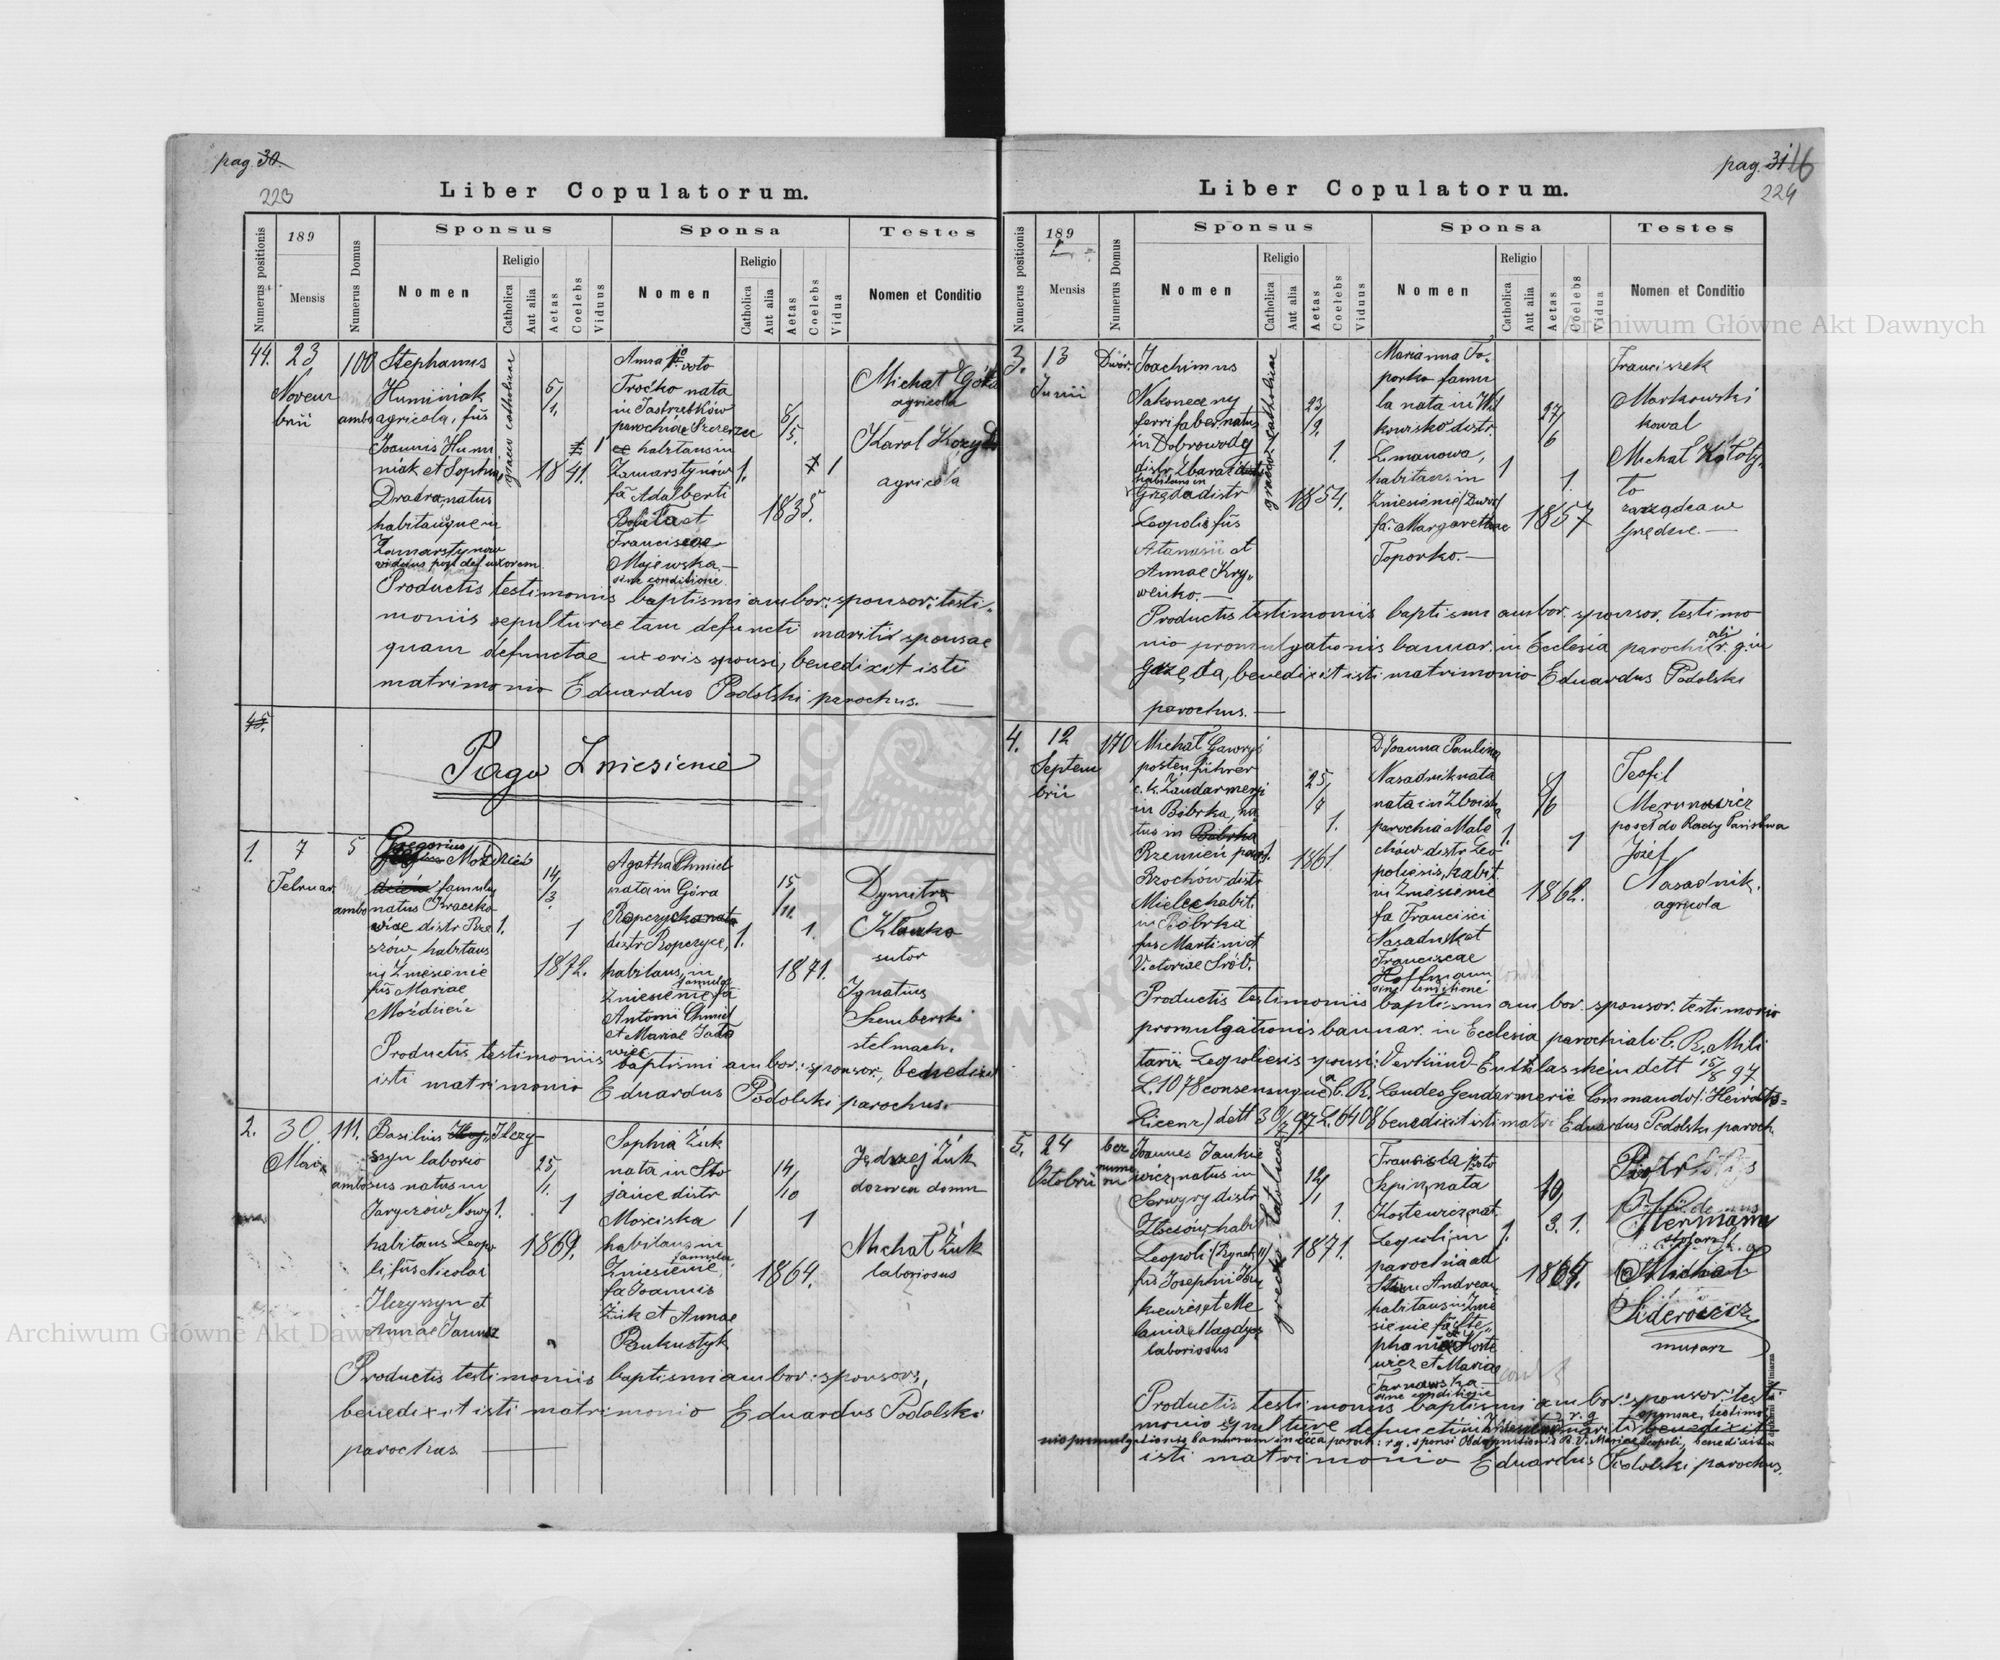 pag. 30.
223
Liber Copulatorum.
Numerus positionis
189
Mensis
Numerus Domus
Sponsus
Nomen
Religio
Catholica
Aut alia
Aetas
Coelebs
Viduus
Sponsa
Nomen
Religio
Catholica
Aut alia
Aetas
Coelebs
Vidua
Testes
Nomen et Conditio
44. 23 Novem
brii
100
ambo
Stephanus
Huminiak
agricola, fűs
Joannis Humi
niak et Sophiae
natus
habitansque in
Zamarstynów
viduus post def. uxorem.
graeco catholicae
5/1.
1841.
1
Anna 1º voto
Troćko nata
in Jastrzębków
parochiae Szczerzec
habitans in
Zamarstynów
fª Adalberti
Franciscae
Majewska.—
sine conditione.
1.
8/5.
1835.
1
Michał
agricola
Karol
agricola
Productis testimoniis baptismi ambor. sponsor. testi-
moniis sepulturae tam defuncti mariti sponsae
quam defunctae uxoris sponsi, benedixit isti
matrimonio Eduardus Podolski parochus.—
45.
Pago Zniesienie
1. 7
Februar.
5
ambo
Gregorius
Moździeń
famulus
natus Kraczko-
wiae distr. Rze
szów, habitans
in Zniesienie
fűs Mariae
Moździeń
1.
14/3.
1872.
1
Agatha Chmiel
nata in Góra
Ropczycka nata
distr. Ropczyce,
habitans in
famula
Zniesienie fª
Antoni Chmiel
et Mariae Jado
wiec
1.
15/11.
1871.
1.
Dymitr
sutor
Ignatius
Szemberski
stelmach.
Productis testimoniis baptismi ambor. sponsor., benedixit
isti matrimonio Eduardus Podolski parochus.—
2. 30.
Maii
111.
ambo
Basilius Ilczy-
szyn laborio
sus natus in
Jaryczów Nowy
habitans Leopo
li fűs Nicolai
Ilczyszyn et
Annae
1.
25/1.
1869.
1
Sophia Żuk
nata in Sto
jańce distr.
Mościska
habitans in
famula
Zniesienie,
fª Joannis
Żuk et Annae
1
14/10
1864.
1
Jędrzej Żuk
dozorca domu
Michał Żuk
laboriosus
Productis testimoniis baptismi ambor. sponsor.,
benedixit isti matrimonio Eduardus Podolski
parochus
pag. 31
16
224
Liber Copulatorum.
Numerus positionis
189
Mensis
Numerus Domus
Sponsus
Nomen
Religio
Catholica
Aut alia
Aetas
Coelebs
Viduus
Sponsa
Nomen
Religio
Catholica
Aut alia
Aetas
Coelebs
Vidua
Testes
Nomen et Conditio
3. 13
Junii
Dwór.
Joachimus
Nakoneczny
ferri faber natus
in Dobrowody
distr. Zbaraż
habitans in
Grzęda distr.
Leopoli fűs
Atanasii et
Annae Kry-
weńko.—
graeco catholicae
23/9.
1854.
1.
Marianna To-
porko famu
la nata in Wil
kowisko distr.
Limanowa,
habitans in
Zniesienie (Dwór)
fª Margarethae
Toporko.—
1
27/6
1857
1.
Franciszek
Markowski
kowal
Michał
zarządca w
Grzędzie.—
Productis testimoniis baptismi ambor. sponsor. testimo
nio promulgationis bannor. in Ecclesia parochiali r. g. in
Grzęda, benedixit isti matrimonio Eduardus Podolski
parochus.—
4. 12
Septem
brii
170
Michał Gawryś
postenführer
c. k. Żandarmerji
in Bóbrka, na
tus in Bóbrka
Rzemień par.
Rzochów distr.
Mielec habit.
in Bóbrka
fűs Martini et
Victoriae
25/7
1861.
1.
D. Joanna Paulina
Nasadnik nata
nata in Zboiska
parochia Malo
chów distr. Leo
poliensis, habit.
in Zniesienie
fª Francisci
Nasadnik et
Franciscae
Hoffmann
sine conditione
1.
8/6
1862.
1
Teofil
Merunowicz
poseł do Rady Państwa
Józef
Nasadnik,
agricola
Productis testimoniis baptismi ambor. sponsor. testimonio
promulgationis bannor. in Ecclesia parochiali C. R. Mili
taris Leopoliensis sponsi: Verkünd-Entlasschein dett 15/8 97
L. 1078 consensuque C. R. Landes Gendarmerie Commando (Heirats-
Licenz) dett 30/7 97 L. 6408 benedixit isti matri. Eduardus Podolski paroch.
5. 24
Octobrii
bez
numeru
Joannes Jankie
wicz, natus in
Serwyry distr.
Złoczów habit.
Leopoli (Rynek 11)
fűs Josephi Jan
kiewicz et Me
lania
laboriosus
graeco catholicae
12/1
1871.
1.
Francisca 1º voto
Szpin, nata
Kostewicz nat.
Leopoli in
parochia ad
Stum Andream
habitans in Znie
sienie fª Ste-
phani Koste
wicz et Mariae
Tarnawska
sine conditione
1.
10/3.
1864.
1.
Piotr
Hermann
stolarz
Michał
Siderowicz
murarz
Productis testimoniis baptismi ambor. sponsor. testi
monio sepulturae defuncti mariti sponsae, testimo
nio promulgationis bannorum in Ecclesia paroch. r. g. sponsi B. V. Mariae Leopoli, benedixit
isti matrimonio Eduardus Podolski parochus.
Archiwum Główne Akt Dawnych
Archiwum Główne Akt Dawnych